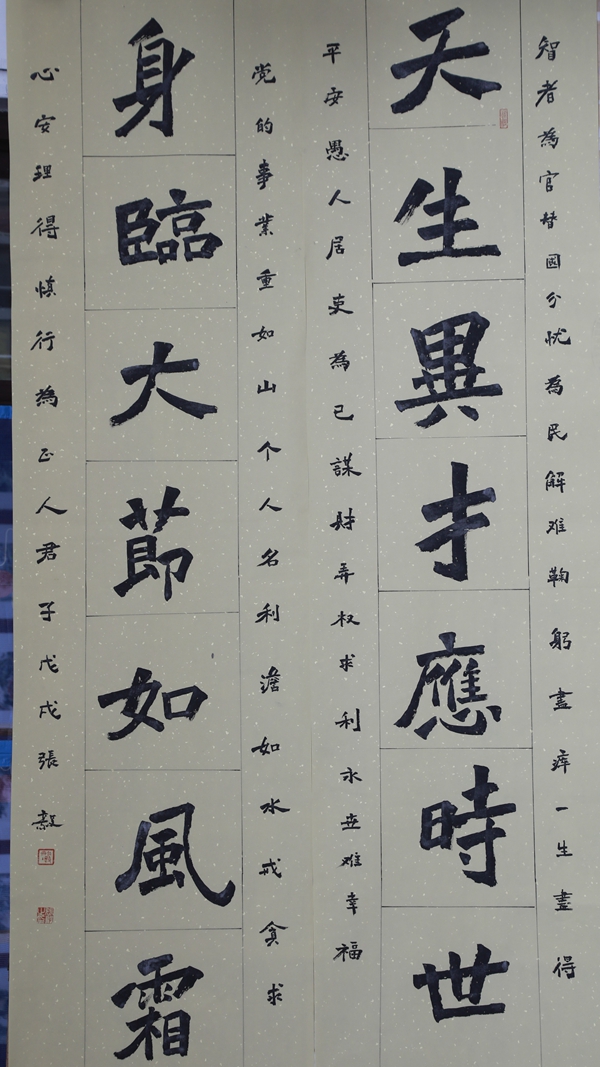 智者為官替國分忧為民解难鞠躬盡瘁一生盡得
天生異才應時世
平安愚人居吏為已謀財弄权求利永世难幸福
党的事業重如山个人名利澹如水戒贪求
身臨大節如風霜
心安理得慎行為正人君子戊戌張毅